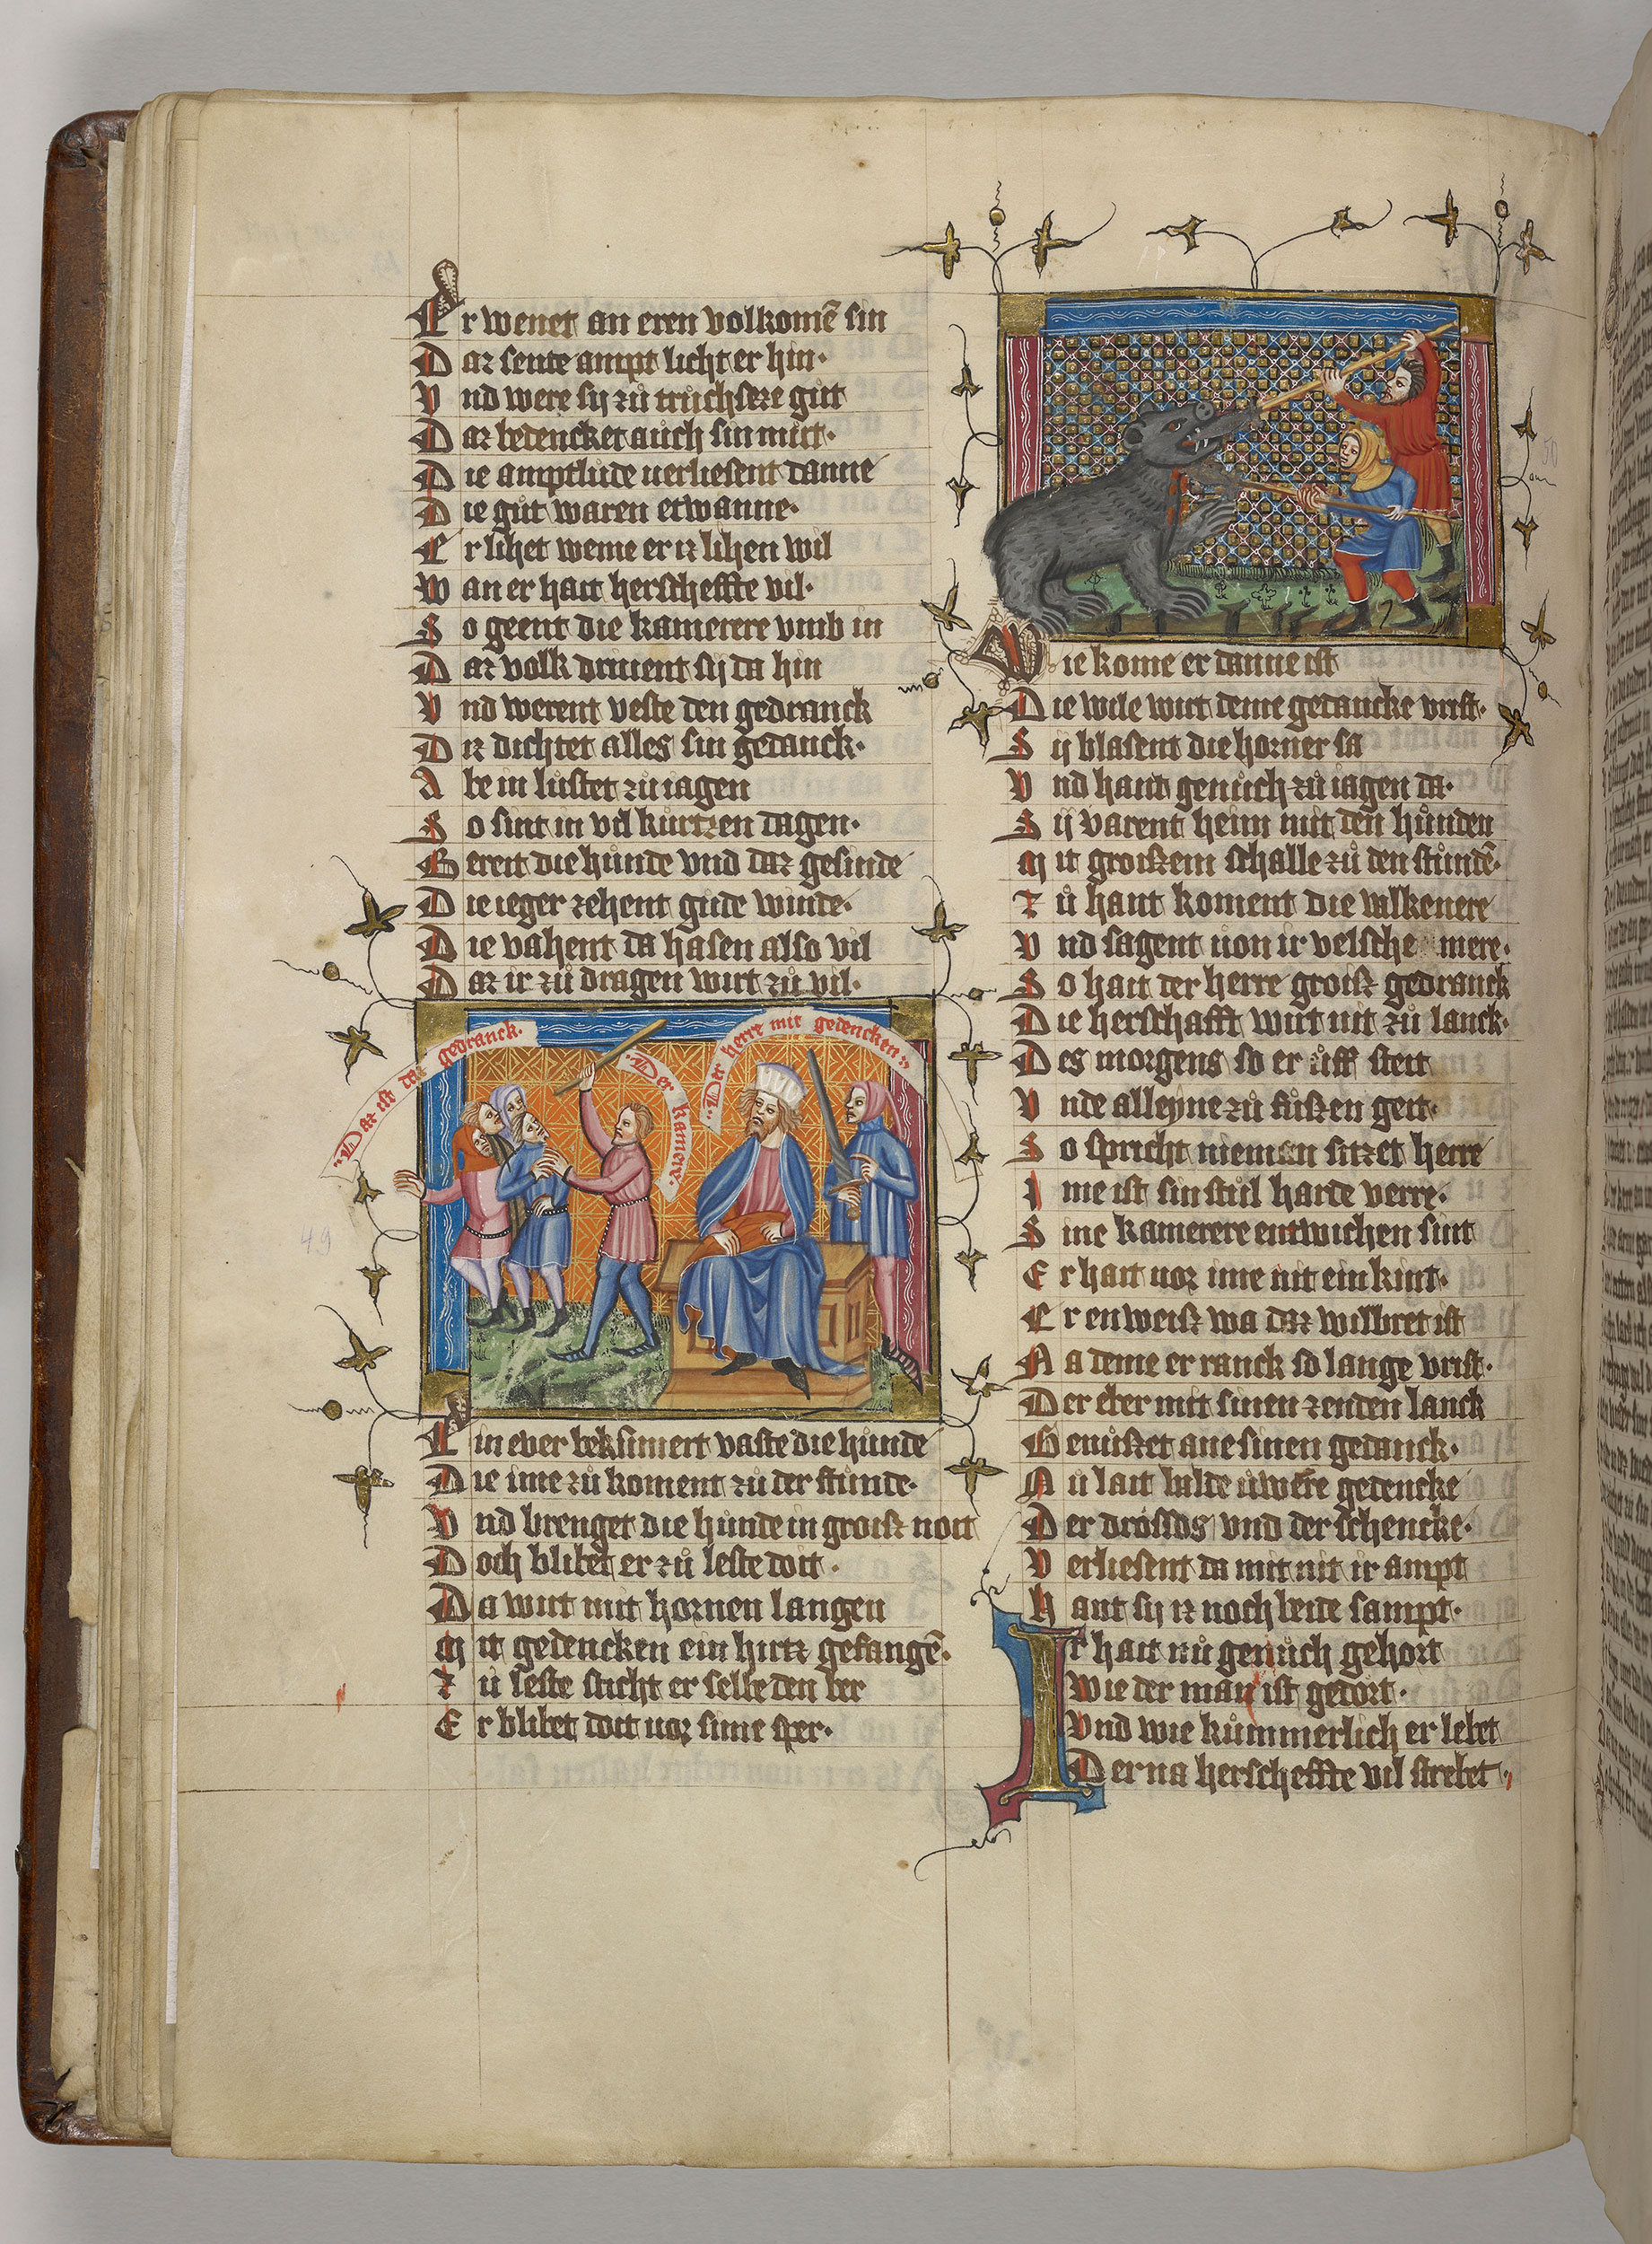 Er wenet an eren volkomē sin
Daz sente ampt licht er hin·
Vnd were sij zů trůchseze gůt
Daz bedencket aůch sin můt·
Die amptlůde uerliesent danne
Die gůt waren etwanne·
Er lihet weme er iz lihen wil
Wan er hait herscheffte vil·
So geent die kamerere vmb in
Daz volk driuent sij da hin
Vnd werent veste den gedranck
Diz dichtet alles sin gedanck·
Abe in lůstet zů iagen
So sint in vil kůrtzen dagen·
Bereit die hůnde vnd daz gesinde
Die ieger zehent gůde winde·
Die vahent da hasen also vil
Daz ir zů dragen wirt zů vil·
Daz ist daz gedranck·
Der kamere·
Der herre mit gedencken
Ein ever bekůmert vaste die hůnde
Die ime zů koment zů der stůnde·
Vnd brenget die hůnde in groisz noit
Doch blibet er zů leste doit·
Da wirt mit hornen langen
Mit gedencken ein hirtz gefangē·
Zů leste sticht er selbe den ber
Er blibet doit uor sime sper·
Wie kome er danne ist
Die wile wirt deme gedancke vrist·
Sij blasent die horner sa
Vnd hant genůch zů iagen da·
Sij varent heim mit den hůnden
Mit groiszem schalle zů den stůndē·
Zů hant koment die valkenere
Vnd sagent uon ir velsche mere·
So hait der herre groisz gedranck
Die herschafft wirt nit zů lanck·
Des morgens so er ůff steit
Vnde alleyne zů fůszen geit·
So spricht nieman sitzet herre
Ime ist sin stůl harde verre·
Sine kamerere entwichen sint
Er hait uor ime nit ein kint·
Er enweisz wa daz wilbret ist
Na deme er ranck so lange vrist·
Der eber mit sinen zenden lanck
Geniszet ane sinen gedanck·
Nů lait balde ůwere gedencke
Der drossds vnd der schencke·
Verliesent da mit nit ir ampt
Hant sij iz noch beide sampt·
Ir hait nů genůch gehort
Wie der man ist gedort·
Vnd wie kůmmerlich er lebet
Der na herscheffte vil strebet·
49
50